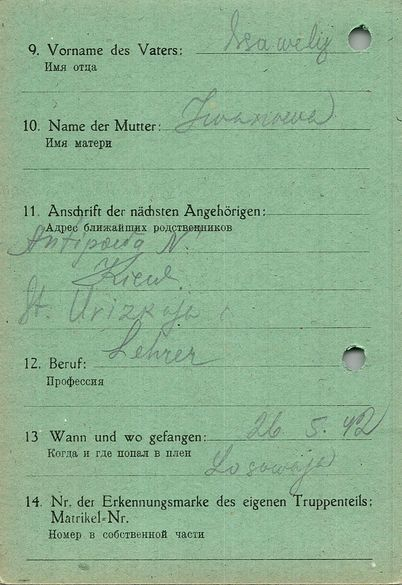 9. Vorname des Vaters: Isawelij
Имя отца
10. Name der Mutter: Iwanowa
Имя матери
11. Anschrift der nächsten Angehörigen:
Адрес ближайших родственников
N.
Kiew.
St. Urizkaja
12. Beruf: Lehrer
Профессия
13 Wann und wo gefangen: 26. 5. 42
Когда и где попал в плен
Losowaja
14. Nr. der Erkennungsmarke des eigenen Truppenteils:
Matrikel-Nr.
Номер в собственной части